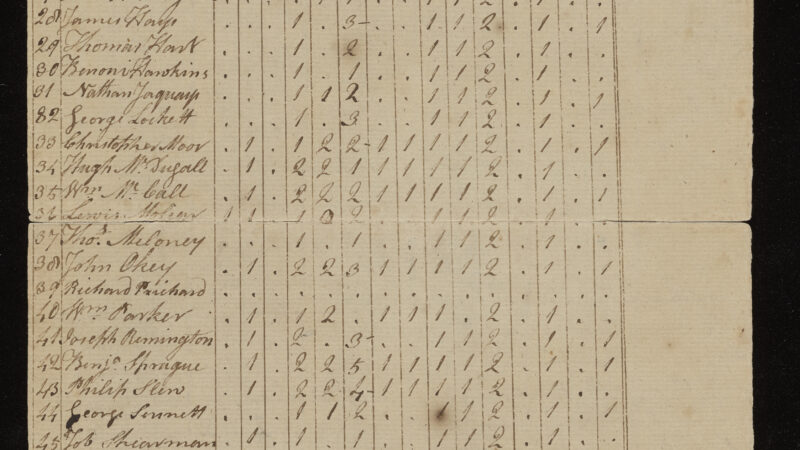 28 James Harp . . 1 . 3 . . 1 1 2 . 1 . 1
29 Thomas Hart . . 1 . 2 . . 1 1 2 . 1 . .
30 Benoni Hawkins . . 1 . 1 . . 1 1 2 . 1 . .
31 Nathan Jaquays . . 1 1 2 . . 1 1 2 . 1 . 1
32 George Lockett . . 1 . 3 . . 1 1 2 . 1 . .
33 Christopher Moor . 1 . 1 2 2 1 1 1 1 2 . 1 . 1
34 Hugh Mc Dugall . 1 . 2 2 1 1 1 1 1 2 . 1 . .
35 Wm Mc Call . 1 . 2 2 2 1 1 1 1 2 . 1 . .
36 Lewis
37 Thos. Meloney . . . 1 . 1 . . 1 1 2 . 1 . .
38 John Okey . 1 . 2 2 3 1 1 1 1 2 . 1 . 1
39 Richard Prichard
40 Wm Parker . 1 . 1 2 . 1 1 1 . 2 . 1 . .
41 Joseph Remington . 1 . 2 . 3 . . 1 1 2 . 1 . .
42 Benja Sprague . 1 . 2 2 5 1 1 1 1 2 . 1 . 1
43 Philip Slew . 1 . 2 2 4 1 1 1 1 2 . 1 . .
44 George Sennett . . . 1 1 2 . . 1 1 2 . 1 . 1
45 Job Shearman . 1 . 1 . 1 . . 1 1 2 . 1 . 1